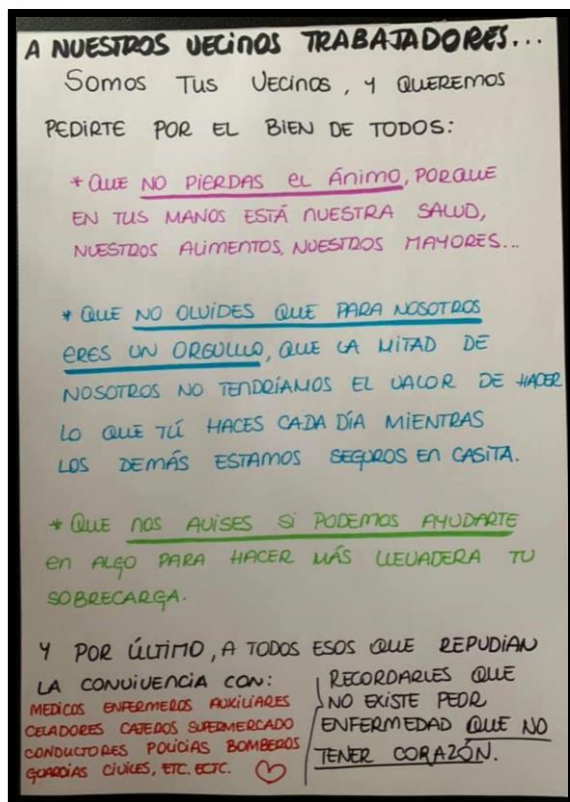 A NUESTROS VECINOS TRABAJADORES...
SOMOS TUS VECINOS, Y QUEREMOS
PEDIRTE POR EL BIEN DE TODOS:
* QUE NO PIERDAS EL ÁNIMO, PORQUE
EN TUS MANOS ESTÁ NUESTRA SALUD,
NUESTROS ALIMENTOS, NUESTROS MAYORES...
* QUE NO OLVIDES QUE PARA NOSOTROS
ERES UN ORGULLO, QUE LA MITAD DE
NOSOTROS NO TENDRÍAMOS EL VALOR DE HACER
LO QUE TÚ HACES CADA DÍA MIENTRAS
LOS DEMÁS ESTAMOS SEGUROS EN CASITA.
* QUE NOS AVISES SI PODEMOS AYUDARTE
EN ALGO PARA HACER MÁS LLEVADERA TU
SOBRECARGA.
Y POR ÚLTIMO, A TODOS ESOS QUE REPUDIAN
LA CONVIVENCIA CON:
MEDICOS ENFERMEROS AUXILIARES
CELADORES CAJEROS SUPERMERCADO
CONDUCTORES POLICÍAS BOMBEROS
GUARDIAS CIVILES, ETC. ECTC.
RECORDARLES QUE
NO EXISTE PEOR
ENFERMEDAD QUE NO
TENER CORAZÓN.